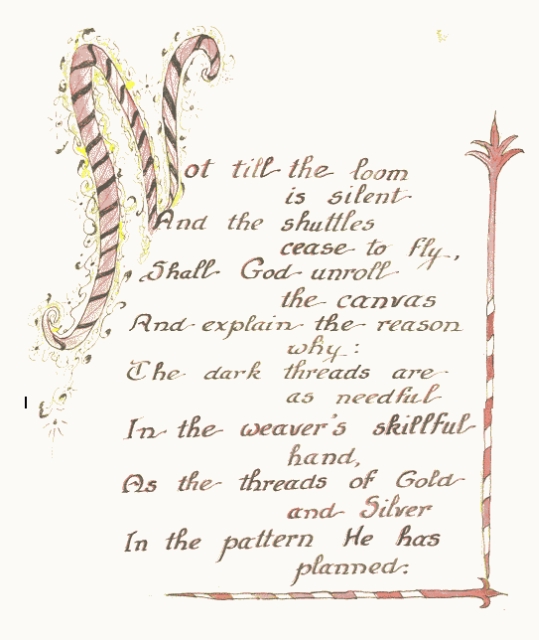 Not till the loom
is silent
And the shuttles
cease to fly,
Shall God unroll
the canvas
And explain the reason
why:
The dark threads are
as needful
In the weaver's skillful
hand,
As the threads of Gold
and Silver
In the pattern He has
planned: